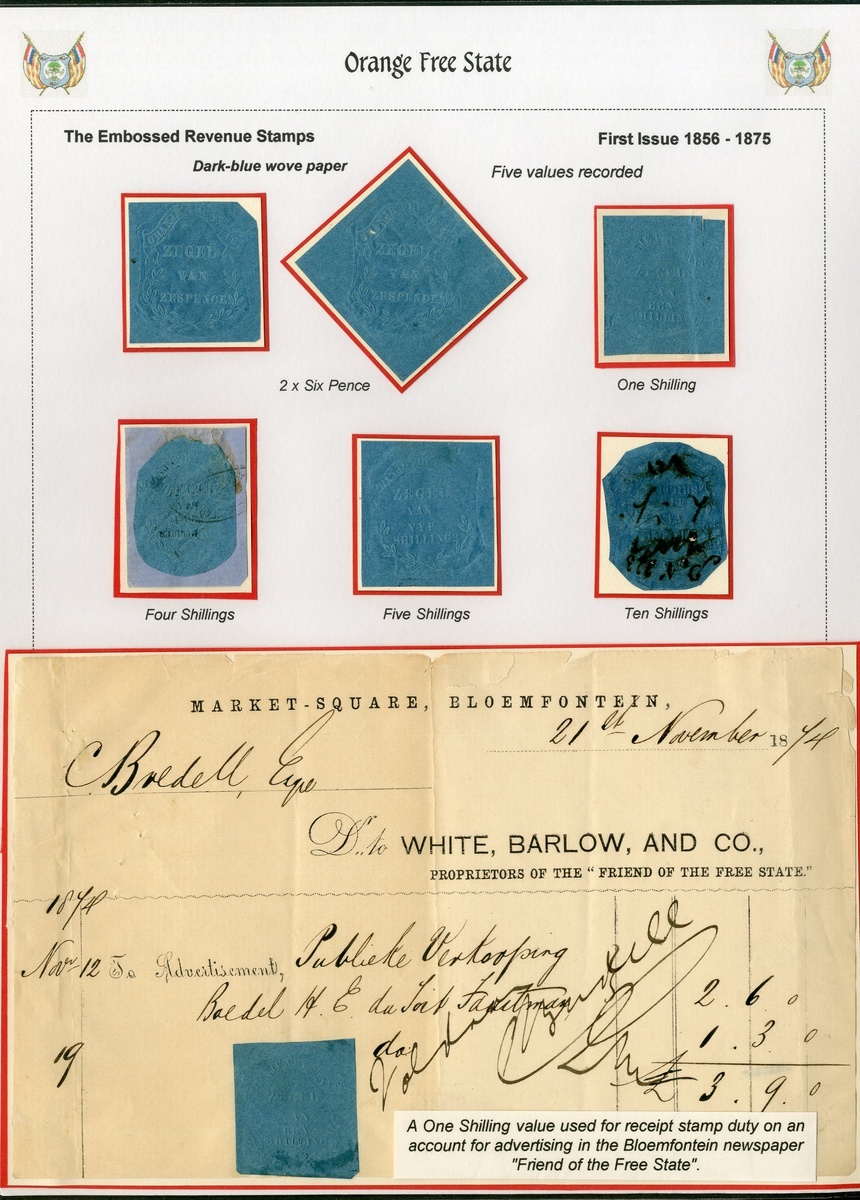 Orange Free State
The Embossed Revenue Stamps
First Issue 1856 - 1875
Dark-blue wove paper
Five values recorded
ZEGEL
VAN
ZESPENCE
ZEGEL
VAN
ZESPENCE
2 x Six Pence
One Shilling
ZEGEL
VAN
VYF
SHILLINGS
Four Shillings
Five Shillings
Ten Shillings
MARKET-SQUARE, BLOEMFONTEIN,
21st November 1874
C Bredell, Esqe
Dr. to WHITE, BARLOW, AND CO.,
PROPRIETORS OF THE "FRIEND OF THE FREE STATE."
1874
Novr 12 To Advertisement, Publieke Verkooping
Boedel H. E. du Toit 2. 6. 0
19 do 1. 3. 0
£ 3. 9. 0
A One Shilling value used for receipt stamp duty on an
account for advertising in the Bloemfontein newspaper
"Friend of the Free State".